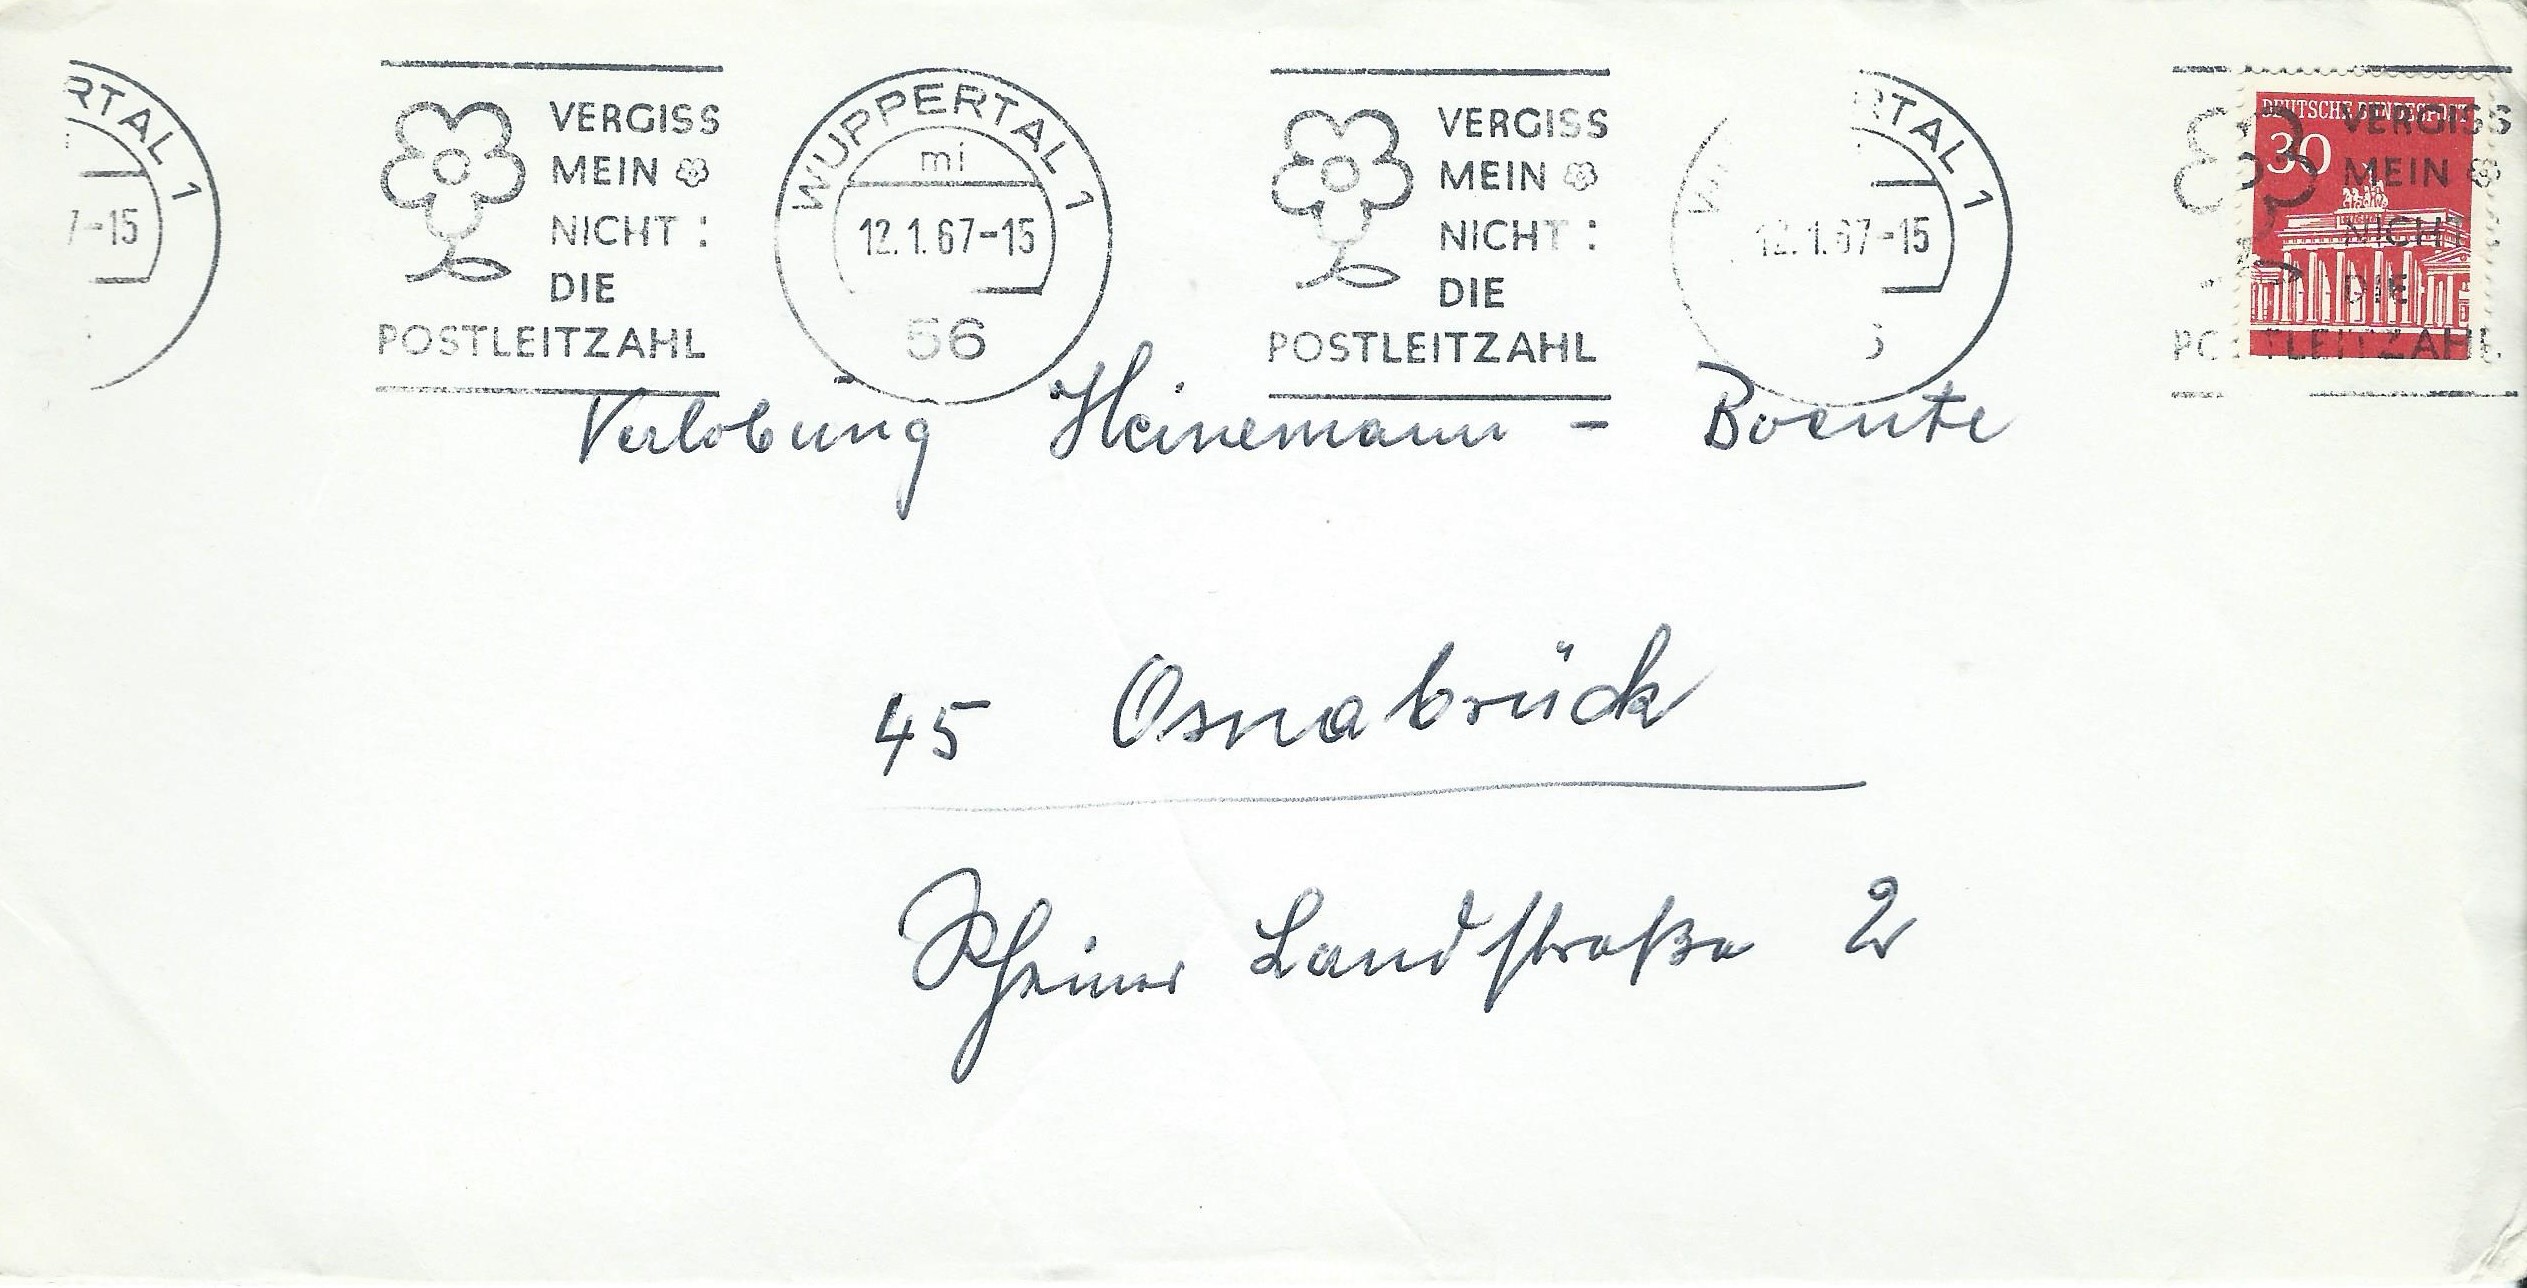 RTAL 1
7-15
VERGISS
MEIN
NICHT:
DIE
POSTLEITZAHL
WUPPERTAL 1
mi
12.1.67-15
56
VERGISS
MEIN
NICHT:
DIE
POSTLEITZAHL
RTAL 1
12.1.67-15
DEUTSCHE BUNDESPOST
30
VERGISS
MEIN
NICHT
DIE
POSTLEITZAHL
Verlobung Heinemann - Boente
45 Osnabrück
Rheiner Landstraße 2